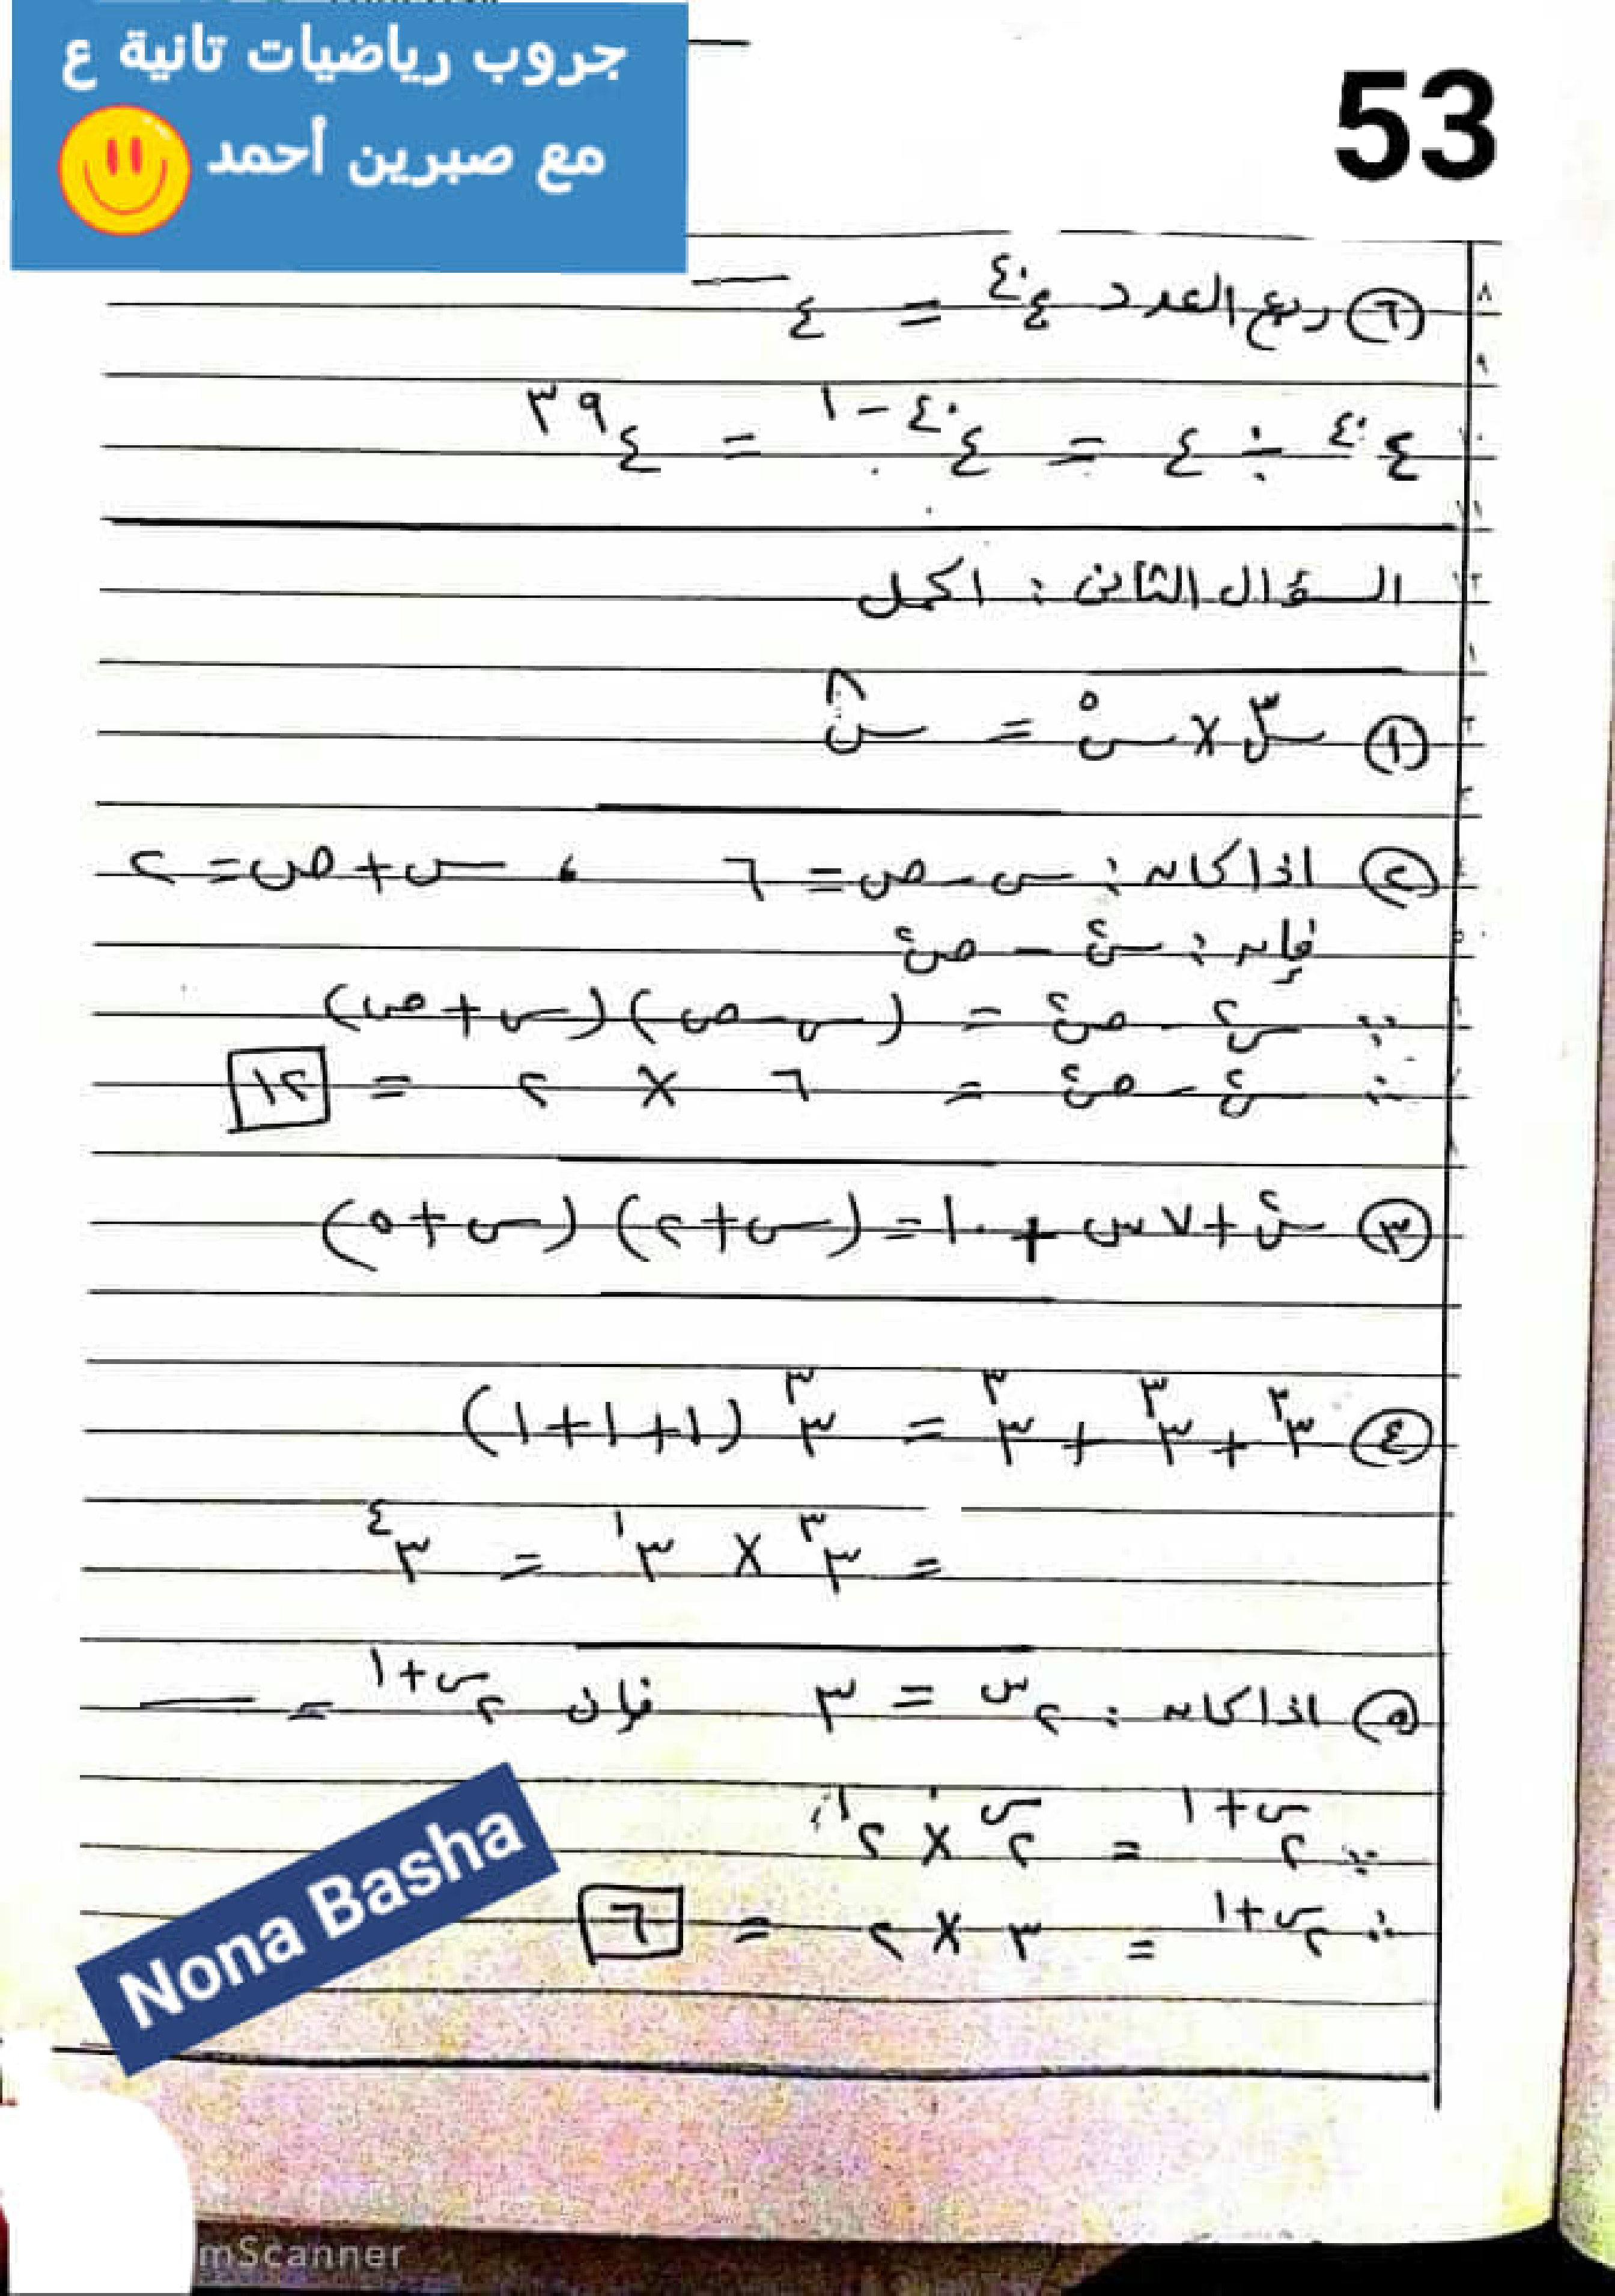 جروب رياضيات تانية ع
مع صبرين أحمد
53
٦ ربع العدد ٤^٤٠ = ٤^—
٤^٤٠ ÷ ٤ = ٤^(٤٠ - ١) = ٤^٣٩
السؤال الثانى : اكمل
١ س^٣ × س^٥ = س^٨
٢ اذا كان : س - ص = ٦ ، س + ص = ٢
فإن : س^٢ - ص^٢
∵ س^٢ - ص^٢ = (س - ص) (س + ص)
∴ س^٢ - ص^٢ = ٦ × ٢ = ١٢
٣ س^٢ + ٧س + ١٠ = (س + ٢) (س + ٥)
٤ ٣^٣ + ٣^٣ + ٣^٣ = ٣^٣ (١ + ١ + ١)
= ٣^٣ × ٣^١ = ٣^٤
٥ اذا كان : ٢^س = ٣ فإن ٢^(س + ١) = —
∵ ٢^(س + ١) = ٢^س × ٢^١
∴ ٢^(س + ١) = ٣ × ٢ = ٦
Nona Basha
mScanner